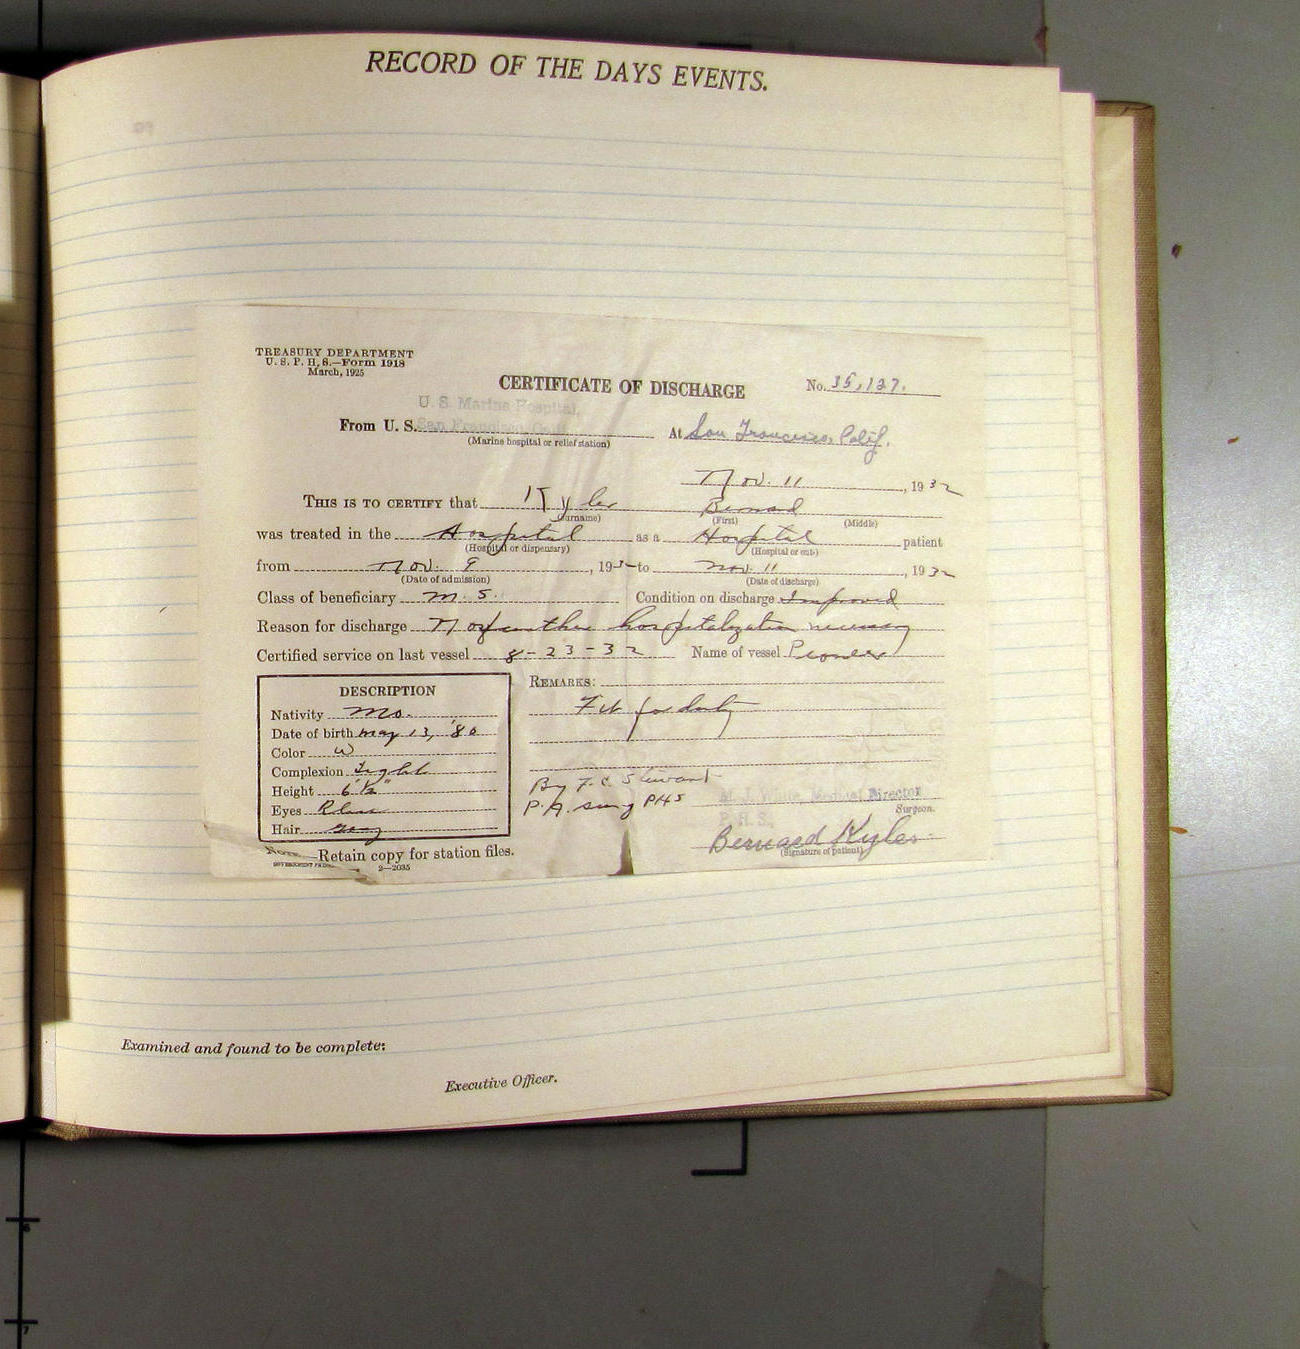 RECORD OF THE DAYS EVENTS.
TREASURY DEPARTMENT
U. S. P. H. S.—Form 1918
March, 1925
CERTIFICATE OF DISCHARGE
No. 35,127.
U. S. Marine Hospital,
San Francisco, Calif.
From U. S.
(Marine hospital or relief station)
At San Francisco, Calif.
Nov. 11, 1932
THIS IS TO CERTIFY that Kyles Bernard
(Surname) (First) (Middle)
was treated in the Hospital as a Hospital patient
(Hospital or dispensary) (Hospital or out-)
from Nov. 9, 193 to Nov. 11, 1932
(Date of admission) (Date of discharge)
Class of beneficiary M. S. Condition on discharge Improved
Reason for discharge No further hospitalization necessary
Certified service on last vessel 8-23-32 Name of vessel Pioneer
DESCRIPTION
Nativity Mo.
Date of birth May 13, '80
Color W
Complexion Light
Height 6' ½"
Eyes Blue
Hair Gray
REMARKS:
Fit for duty
By F. C. Stewart
P. A. Surg PHS
M. J. White, Medical Director
P. H. S.
Surgeon.
Bernard Kyles
(Signature of patient)
Note.—Retain copy for station files.
2—2035
Examined and found to be complete:
Executive Officer.
6
7